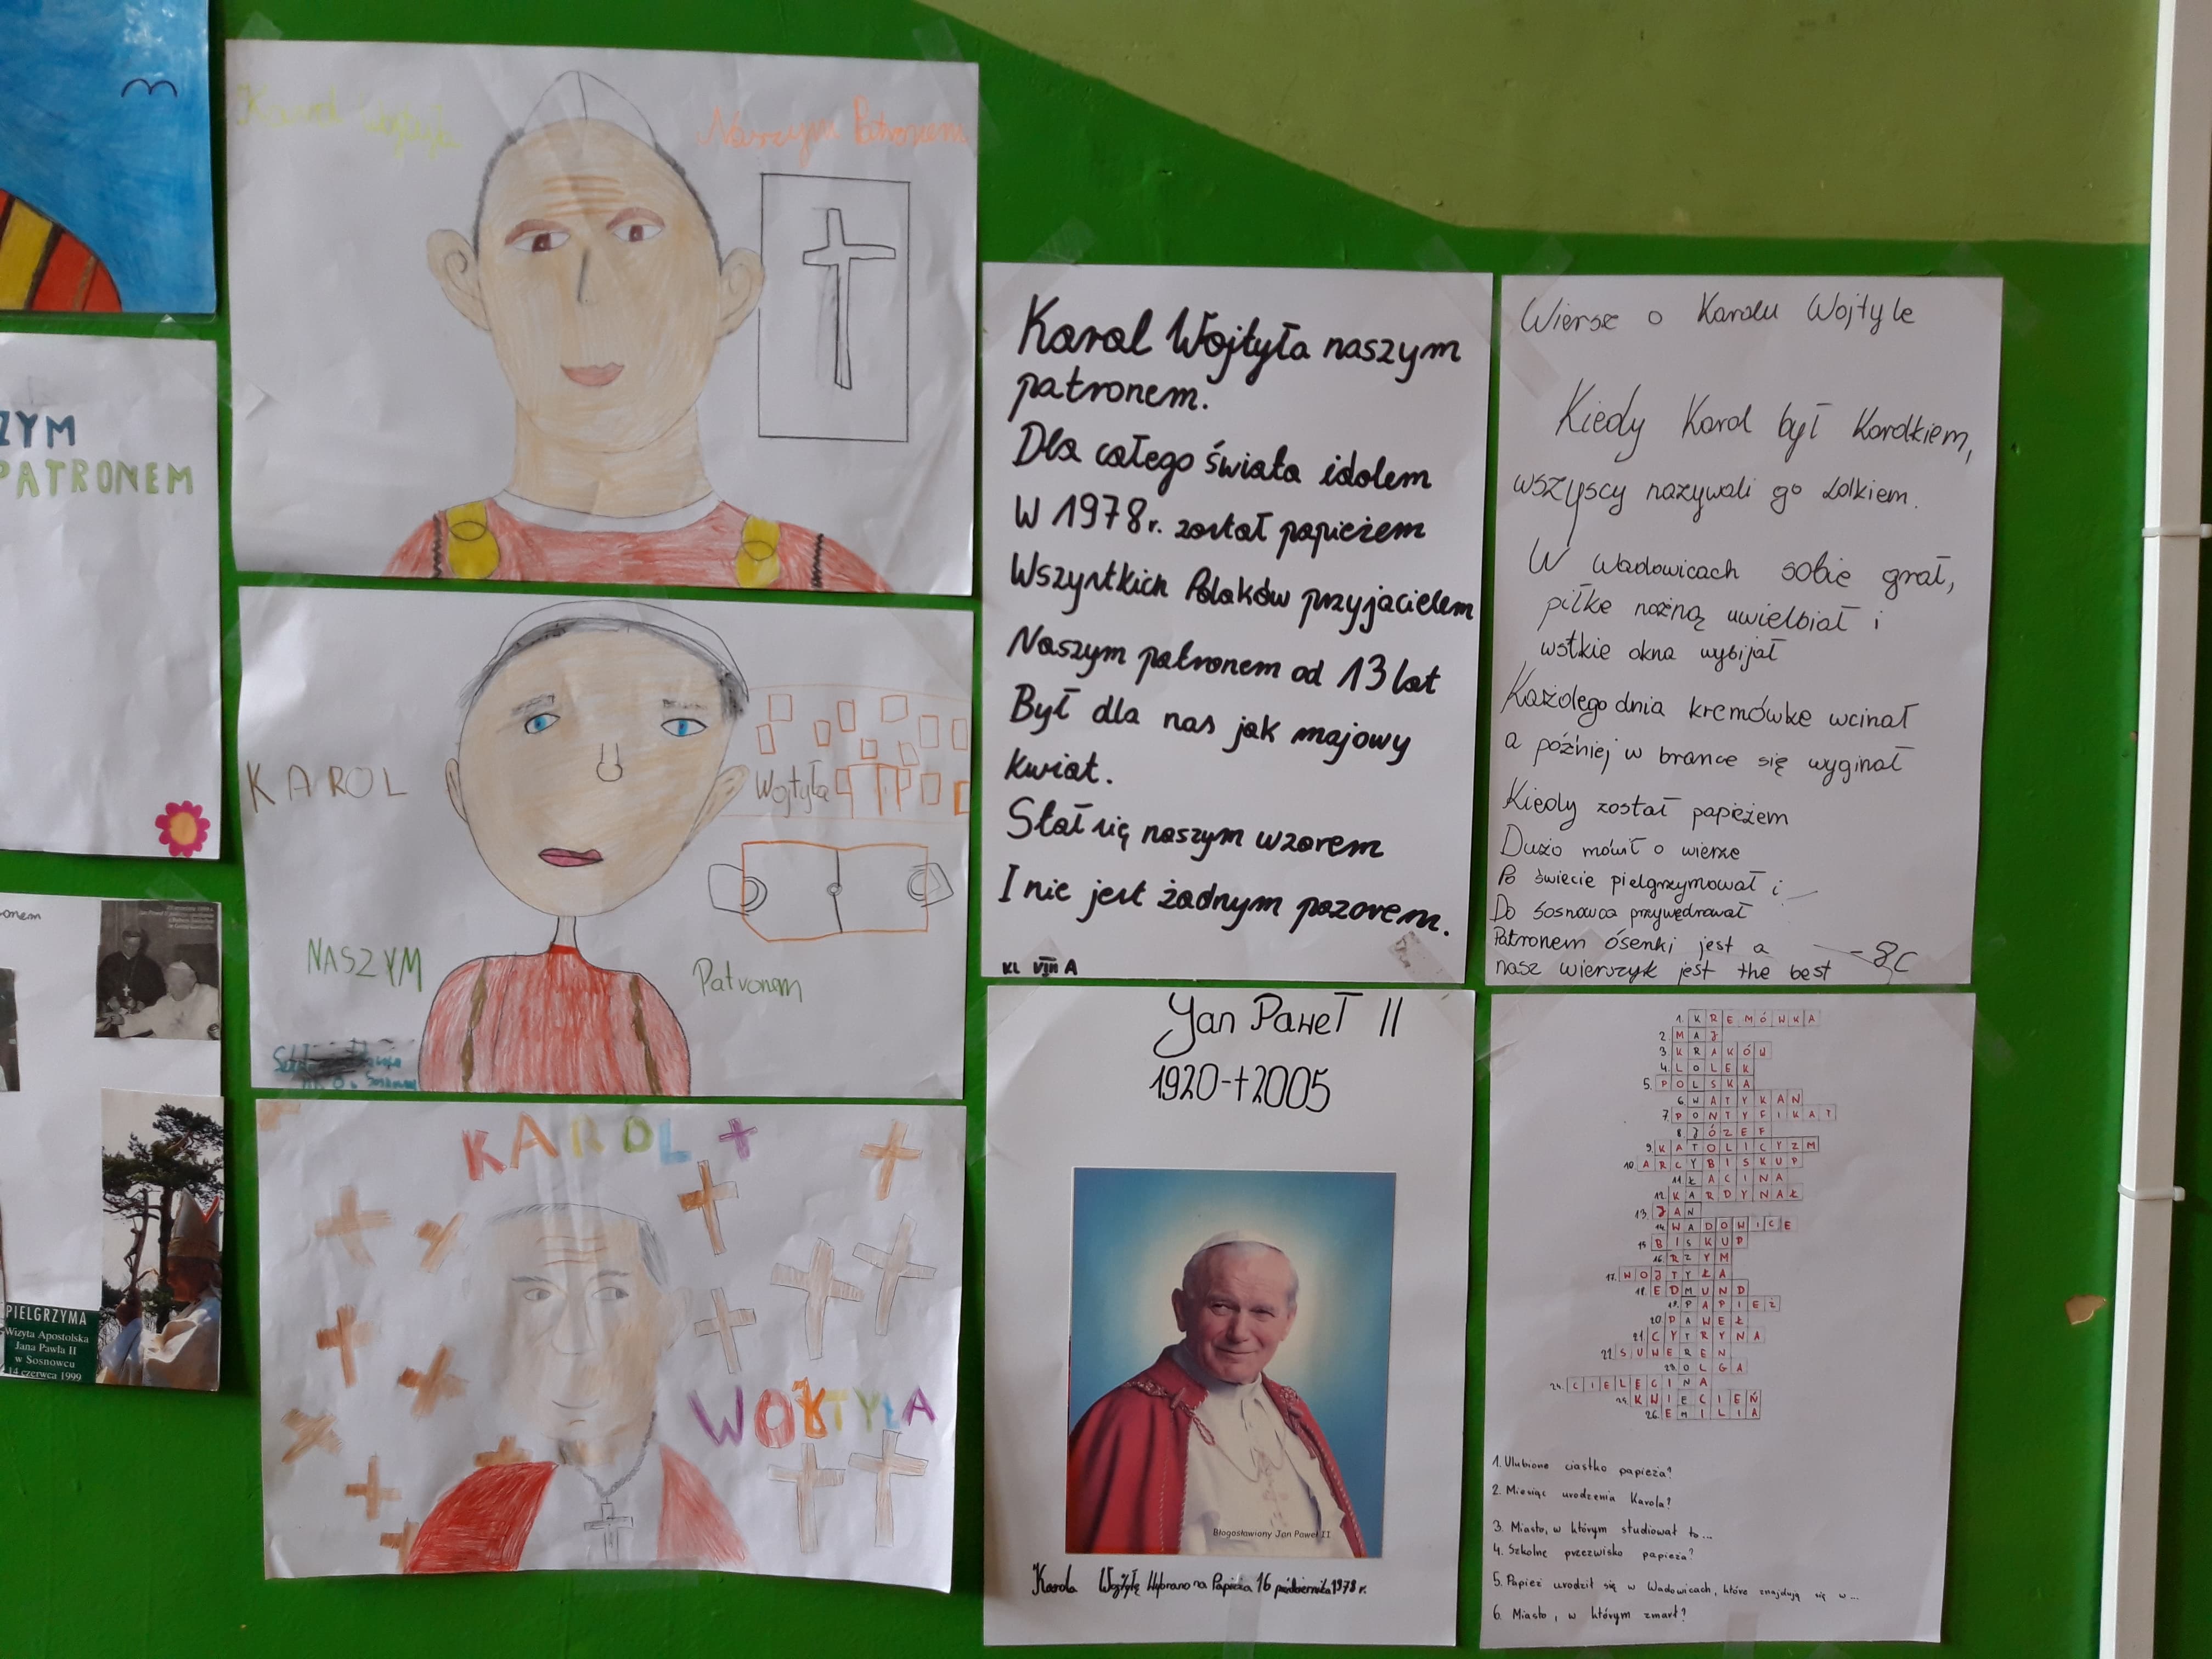 ZYM
PATRONEM
onem
PIELGRZYMA
Wizyta Apostolska
Jana Pawła II
w Sosnowcu
14 czerwca 1999
Naszym Patronem
KAROL
Wojtyła
NASZYM
Patronem
KAROL
WOJTYŁA
Karol Wojtyła naszym
patronem.
Dla całego świata idolem
W 1978 r. został papieżem
Wszystkich Polaków przyjacielem
Naszym patronem od 13 lat
Był dla nas jak majowy
kwiat.
Stał się naszym wzorem
I nie jest żadnym pozorem.
KL VIII A
Wiersz o Karolu Wojtyle
Kiedy Karol był Karolkiem,
wszyscy nazywali go Lolkiem.
W Wadowicach sobie grał,
piłkę nożną uwielbiał i
wstkie okna wybijał
Każdego dnia kremówke wcinał
a później w brance się wyginał
Kiedy został papieżem
Dużo mówił o wierze
Po świecie pielgrzymował i
Do Sosnowca przywędrował
Patronem ósenki jest a
nasz wierszyk jest the best
- 8C
Jan Paweł II
1920-†2005
Błogosławiony Jan Paweł II
Karola Wojtyłę Wybrano na Papieża 16 października 1978 r.
1. KREMÓWKA
2. MAJ
3. KRAKÓW
4. LOLEK
5. POLSKA
6. WATYKAN
7. PONTYFIKAT
8. JÓZEF
9. KATOLICYZM
10. ARCYBISKUP
11. ŁACINA
12. KARDYNAŁ
13. JAN
14. WADOWICE
15. BISKUP
16. RZYM
17. WOJTYŁA
18. EDMUND
19. PAPIEŻ
20. PAWEŁ
21. CYTRYNA
22. SUWEREN
23. OLGA
24. CIELĘCINA
25. KWIECIEŃ
26. EMILIA
1. Ulubione ciastko papieża?
2. Miesiąc urodzenia Karola?
3. Miasto, w którym studiował to...
4. Szkolne przezwisko papieża?
5. Papież urodził się w Wadowicach, które znajdują się w...
6. Miasto, w którym zmarł?